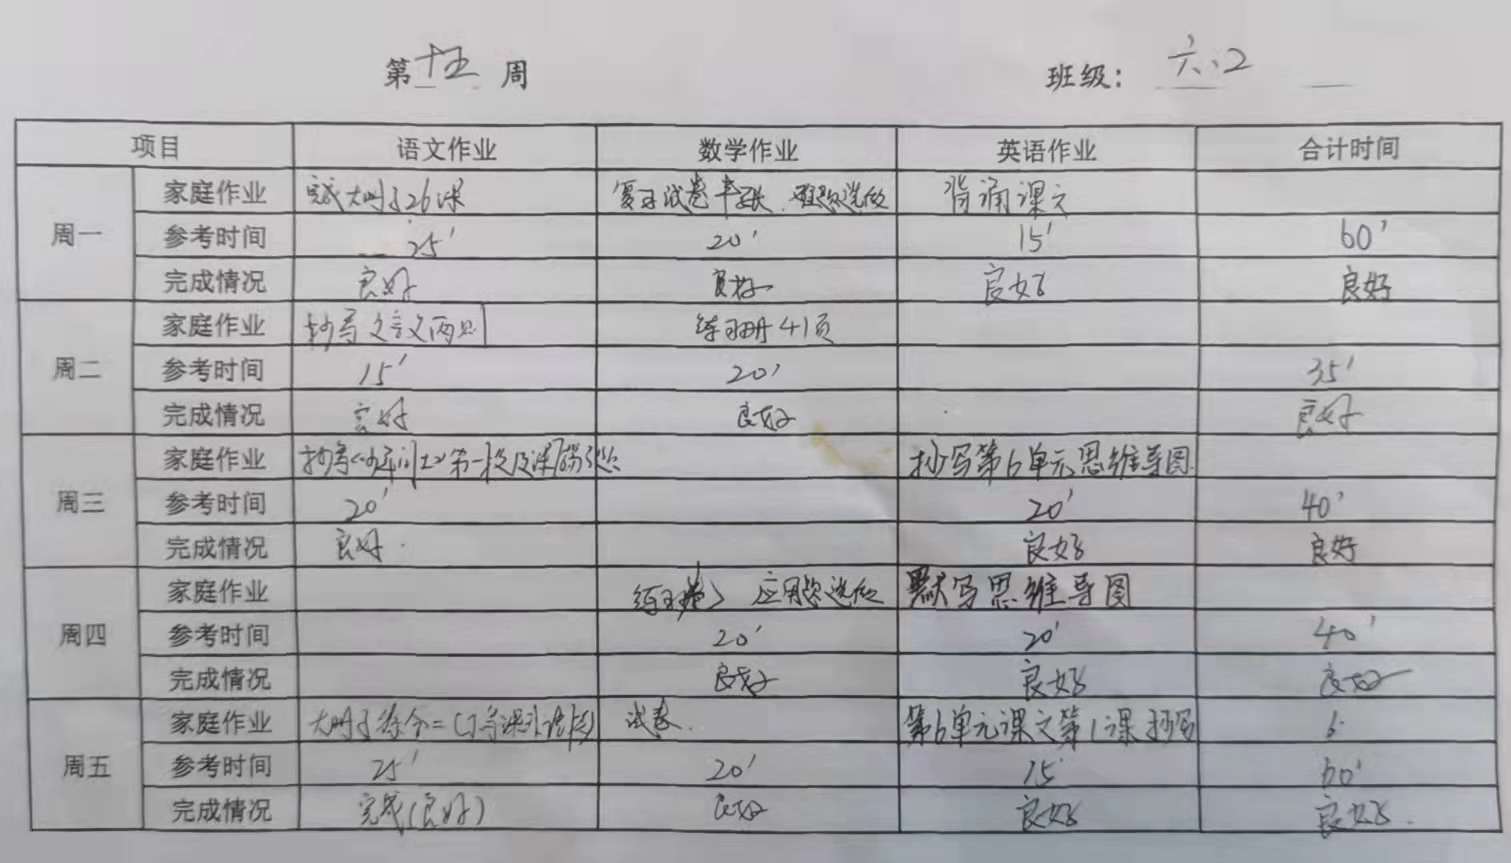 第十五周 班级：六.2
项目 语文作业 数学作业 英语作业 合计时间
周一
家庭作业 完成大册子26课 复习试卷 难题选做 背诵课文
参考时间 25' 20' 15' 60'
完成情况 良好 良好 良好 良好
周二
家庭作业 抄写文言文两则 练习册41页
参考时间 15' 20' 35'
完成情况 良好 良好 良好
周三
家庭作业 抄写 第一段及课后 抄写第6单元思维导图
参考时间 20' 20' 40'
完成情况 良好 良好 良好
周四
家庭作业 练习卷 应用题选做 默写思维导图
参考时间 20' 20' 40'
完成情况 良好 良好 良好
周五
家庭作业 大册子 试卷. 第6单元课文第1课抄写 6
参考时间 25' 20' 15' 60'
完成情况 完成(良好) 良好 良好 良好.